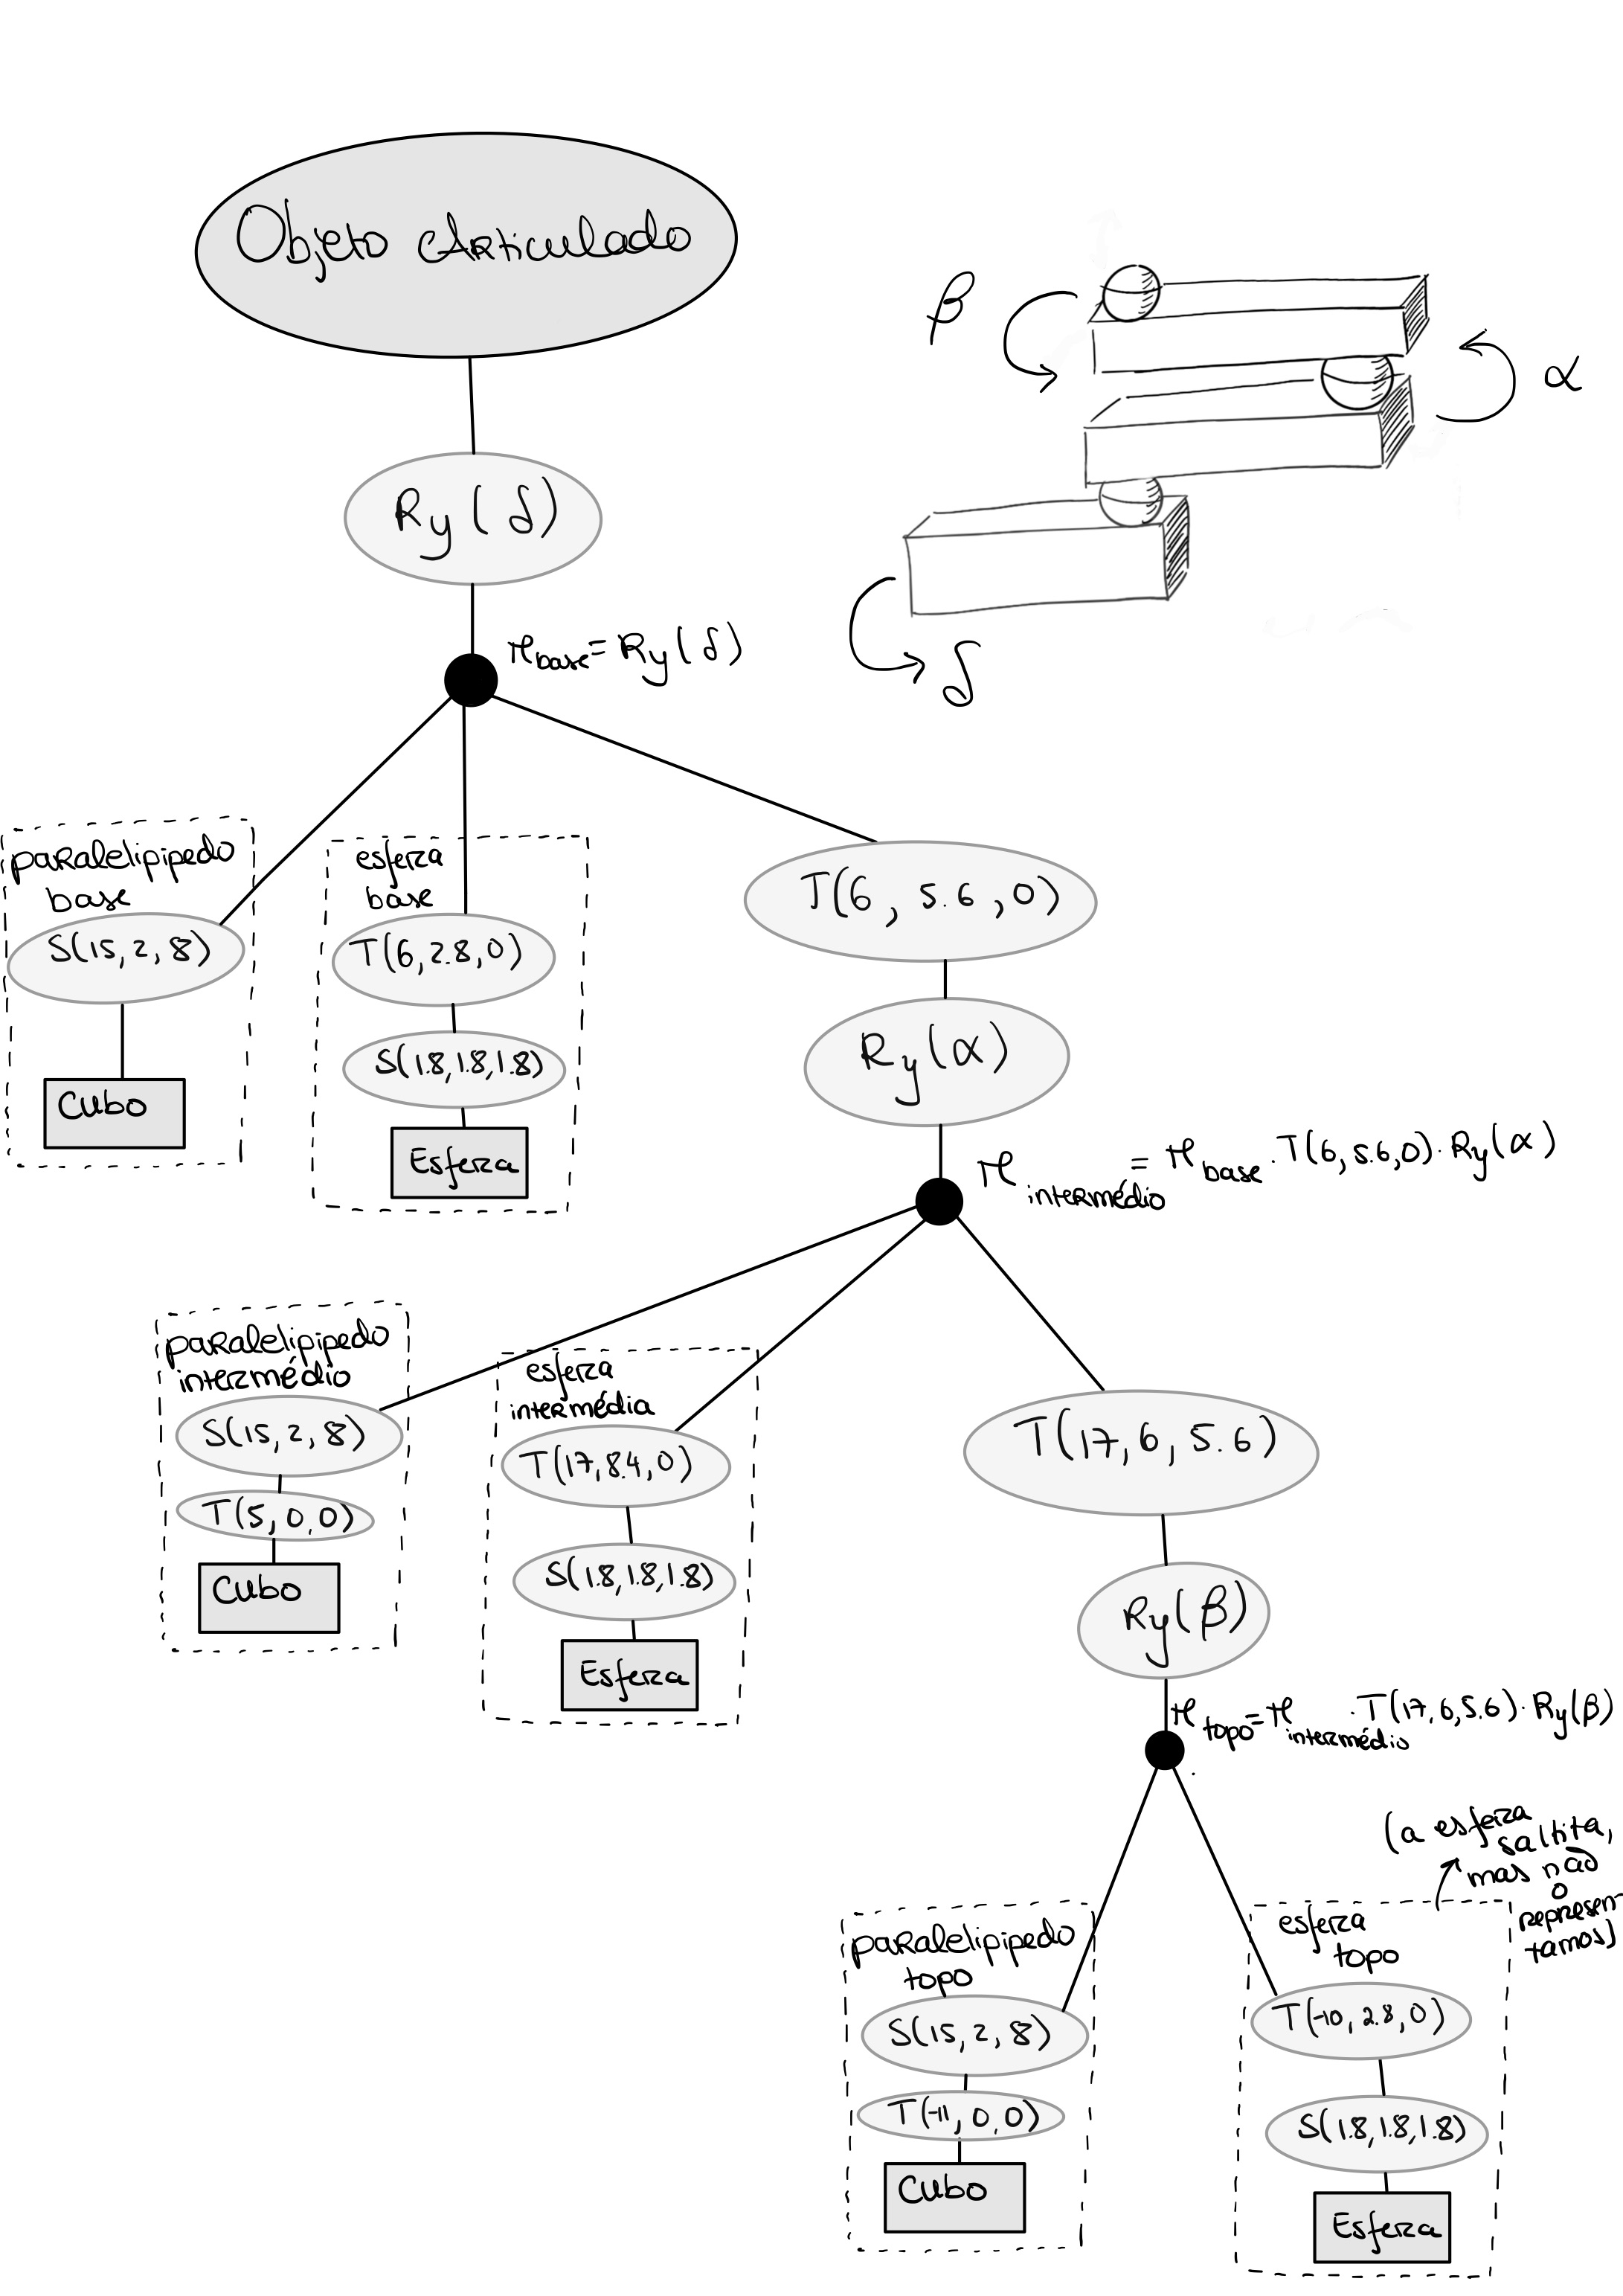 Objeto Articulado
β
α
δ
Ry(δ)
M base = Ry(δ)
paralelipipedo
base
S(15, 2, 8)
Cubo
esfera
base
T(6, 2.8, 0)
S(1.8, 1.8, 1.8)
Esfera
T(6, 5.6, 0)
Ry(α)
M intermédio = M base · T(6, 5.6, 0) · Ry(α)
paralelipipedo
intermédio
S(15, 2, 8)
T(5, 0, 0)
Cubo
esfera
intermédia
T(17, 8.4, 0)
S(1.8, 1.8, 1.8)
Esfera
T(17, 6, 5.6)
Ry(β)
M topo = M intermédio · T(17, 6, 5.6) · Ry(β)
(a esfera
saltita,
mas não
o
represen-
tamos)
paralelipipedo
topo
S(15, 2, 8)
T(-11, 0, 0)
Cubo
esfera
topo
T(-10, 2.8, 0)
S(1.8, 1.8, 1.8)
Esfera